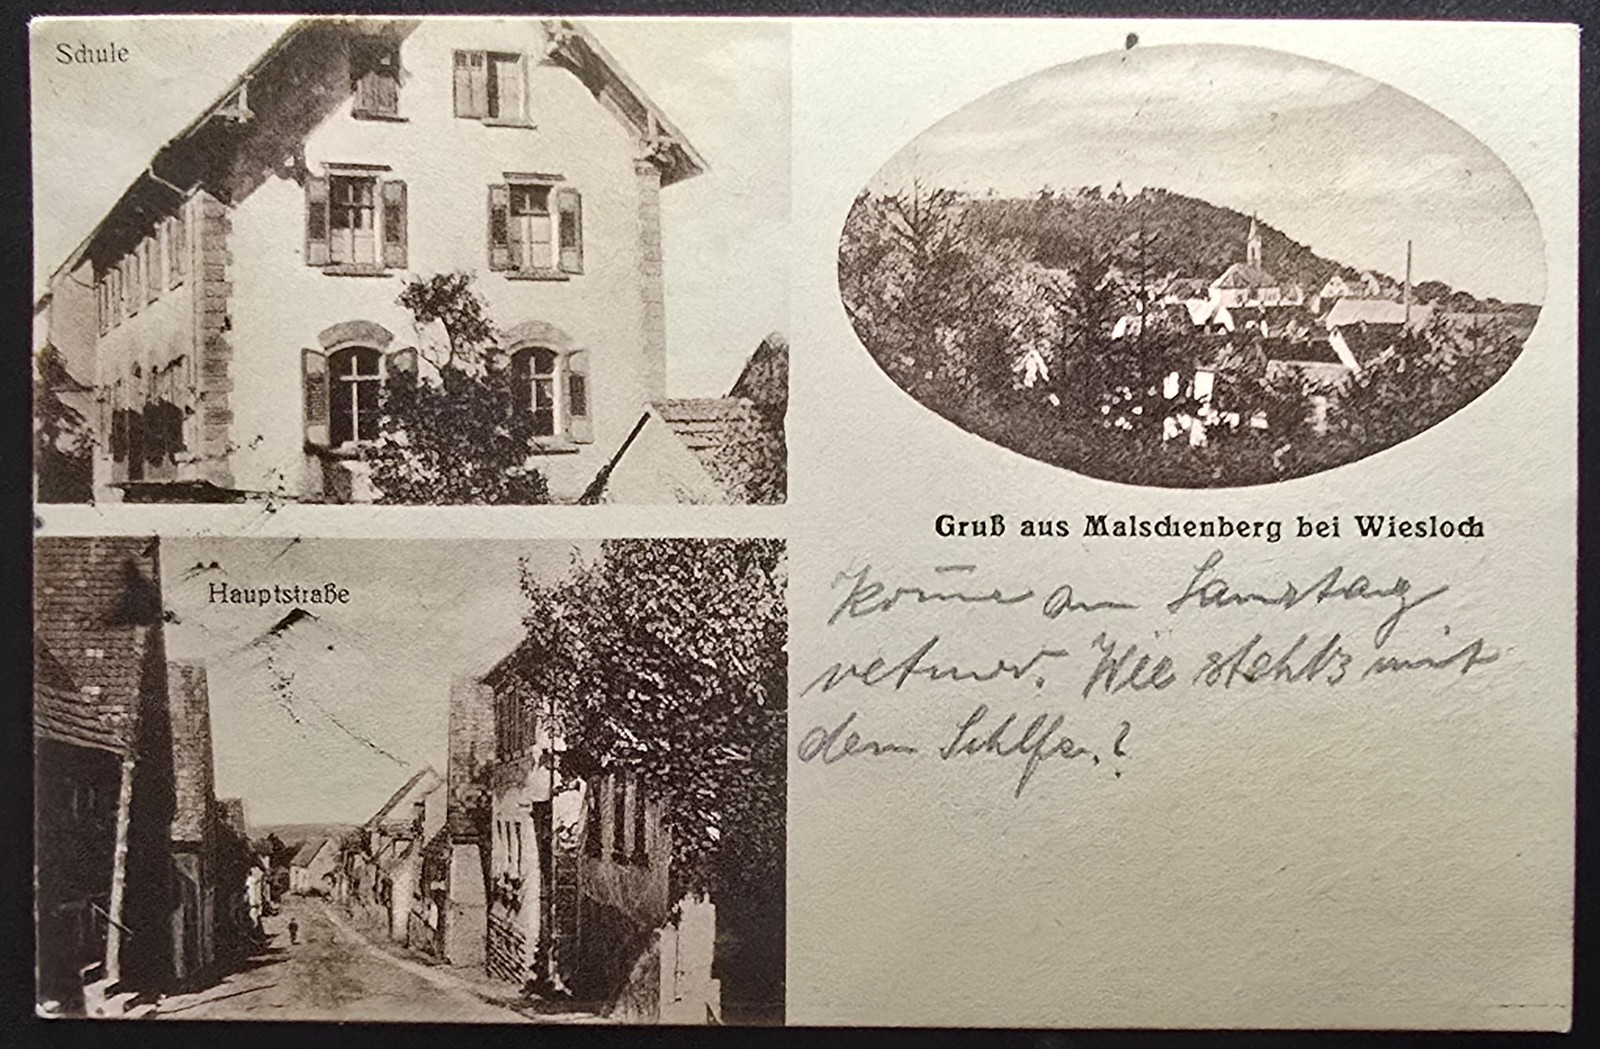 Schule
Gruß aus Malschenberg bei Wiesloch
Hauptstraße
Kom̄e am Samstag
retour. Wie steht's mit
dem